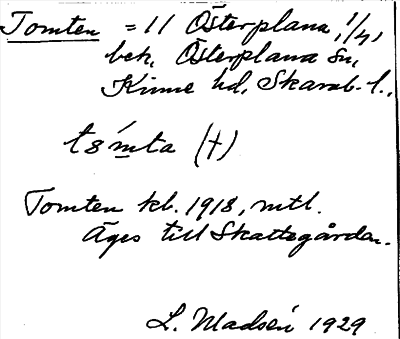 Tomten = 11 Österplana, 1/4,
beh. Österplana sn,
Kinne hd, Skarab. l.
tómta (t)
Tomten kl. 1918, mtl.
Äges till Skattegården.
L. Madsén 1929